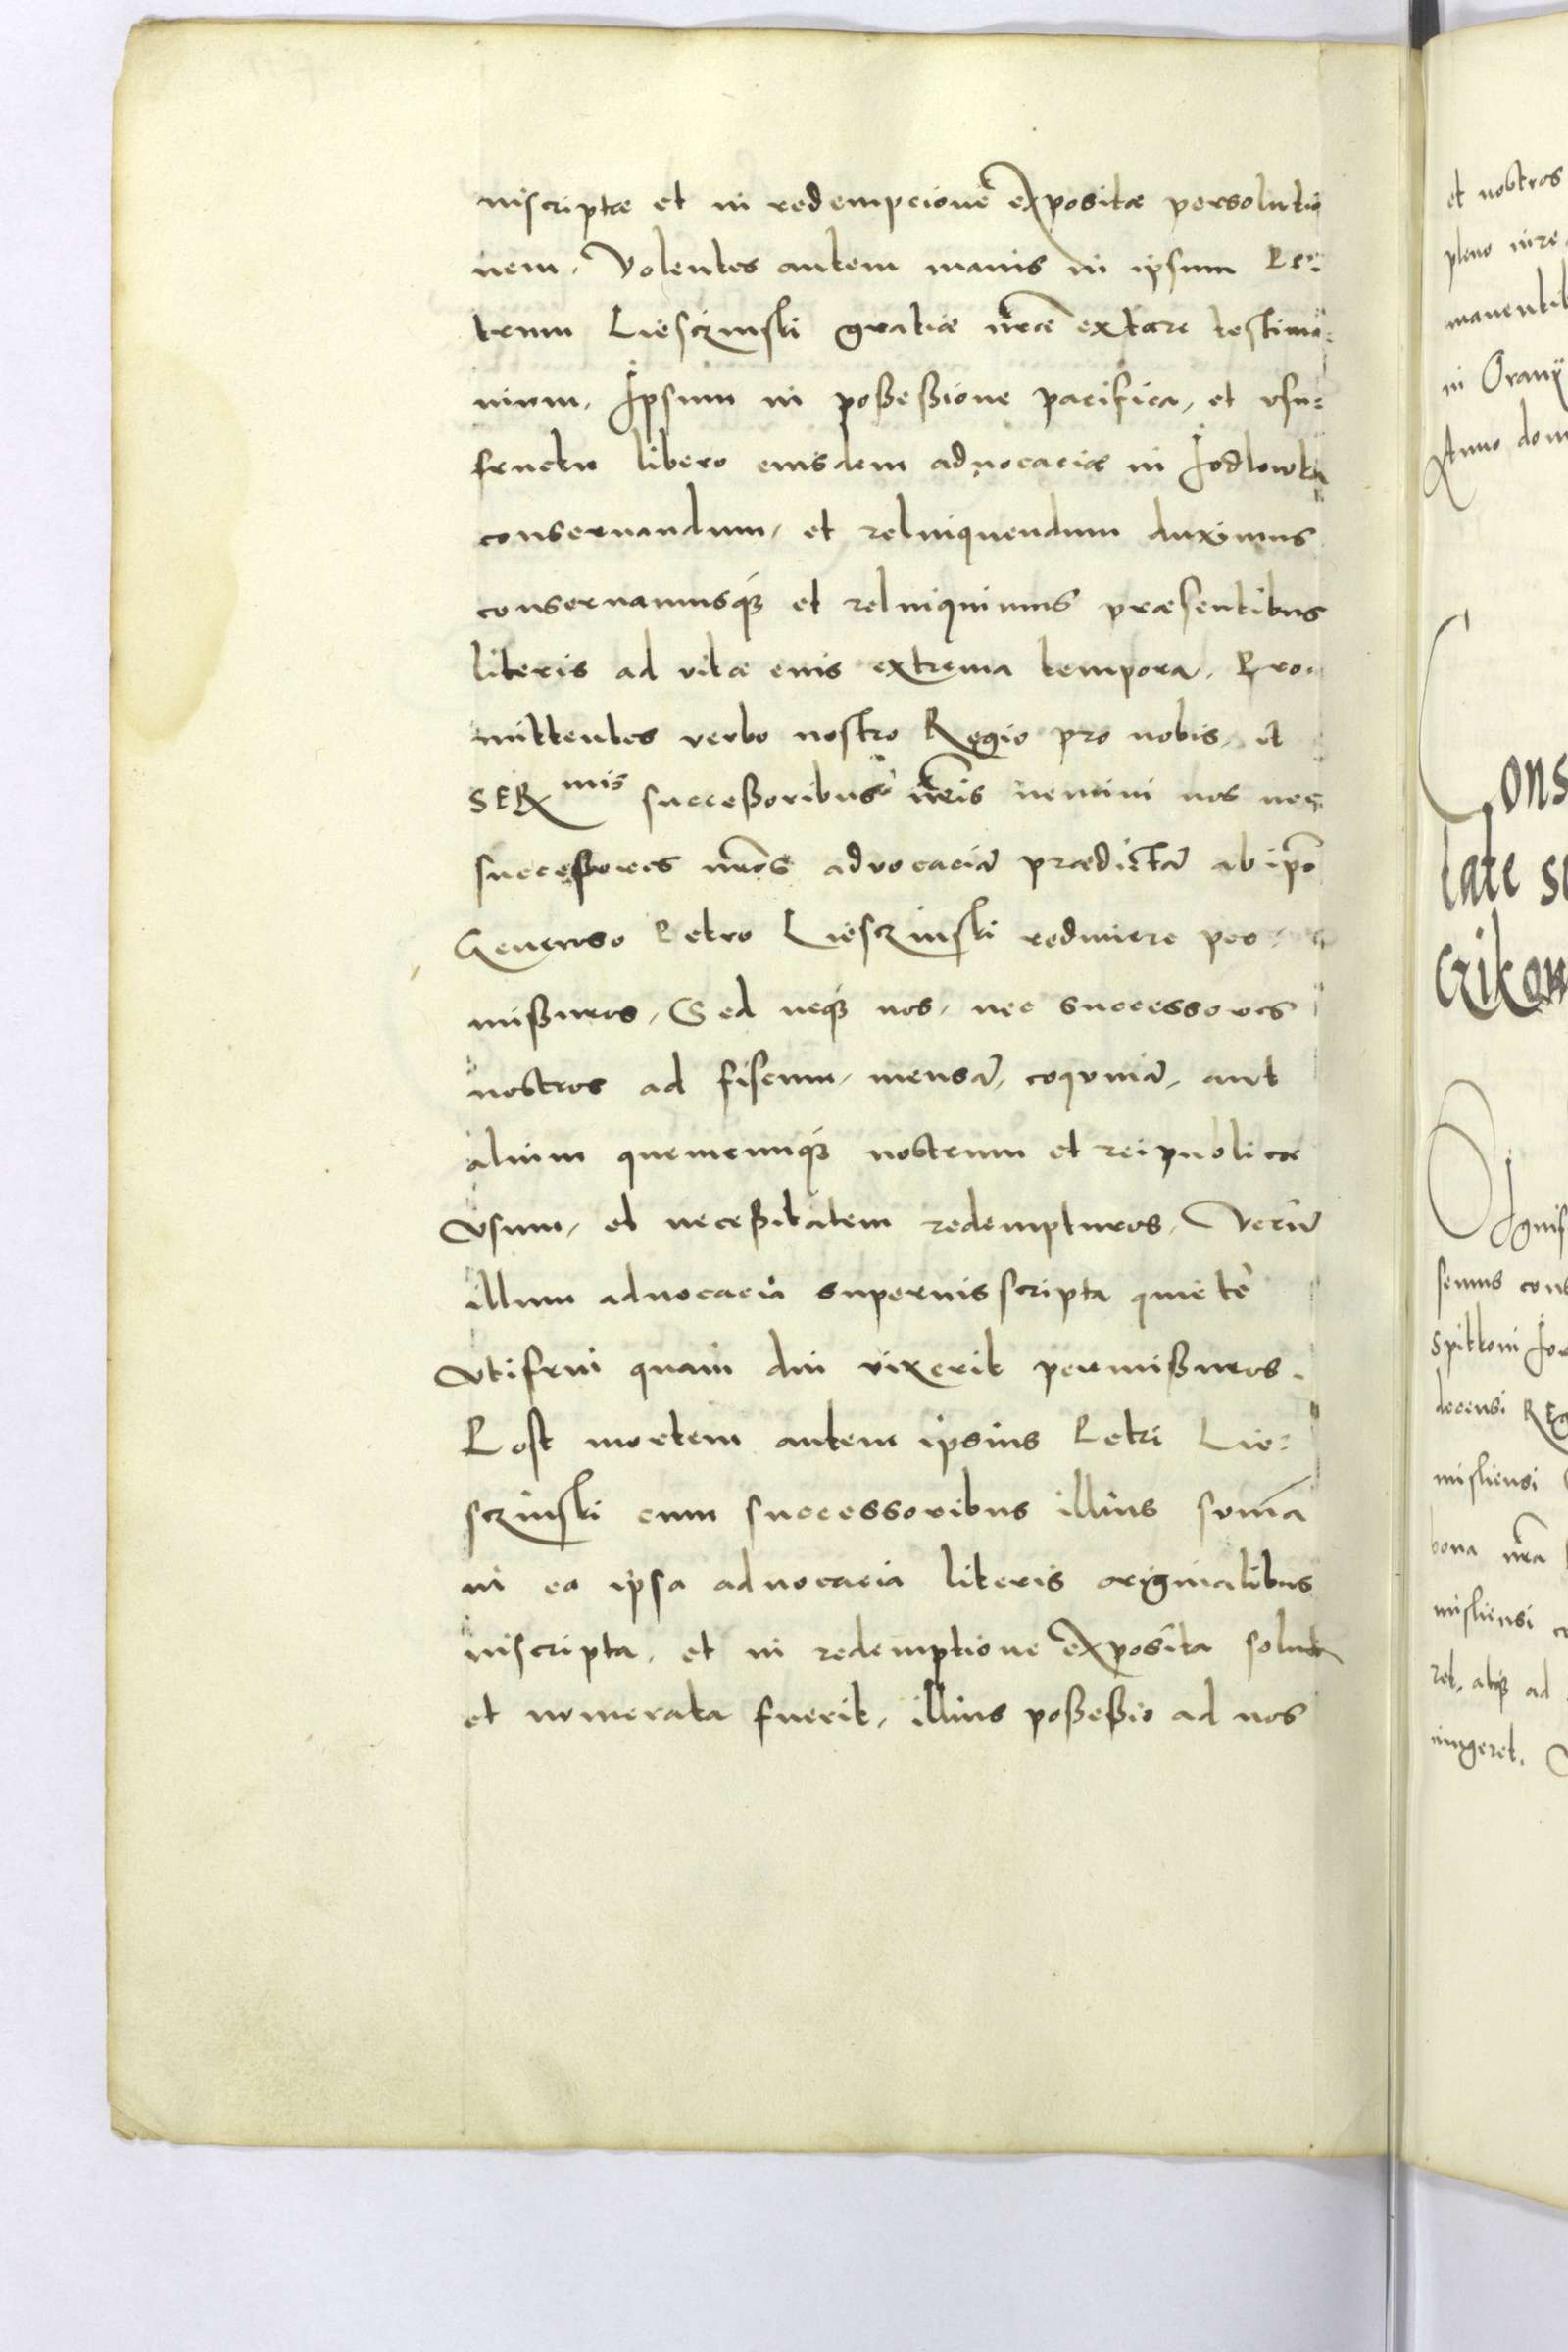 inscriptæ et in redempcionē expositæ persolutio
nem, Volentes autem maius in ipsum Pe:
trum Liesczinski gratiæ nr̄æ extare testimo:
nium, Ipsum in poßeßione pacifica, et vsu:
fructu libero eiusdem aduocaciæ in Jodlowka
conseruandum, et relinquendum duximus
conseruamusqȝ et relinquimus præsentibus
literis ad vitæ eius extrema tempora, Pro:
mittentes verbo nostro Regio pro nobis, et
SERmis succeßoribus nr̄is nemini nos nec
succeßores nr̄os advocaciā prædictā ab ip̄o
Generoso Petro Liesczinski redimere per:
mißuros, Sed neqȝ nos, nec successores
nostros ad fiscum, mensā, coquinā, aut
alium quemcunqȝ nostrum et reipublicæ
vsum, et neceßitatem redempturos, Verū
illum aduocaciā superinsscripta quietè
vtifrui quam diu vixerit permißuros.
Post mortem autem ipsius Petri Lie:
sczinski cum successoribus illius sum̄a
in ea ipsa aduocacia literis originalibus
inscripta, et in redemptione exposita soluta
et numerata fuerit, illius poßeßio ad nos
et nostros
pleno iure
manentib
in Oranij
Anno dom
Cons
late s
Czikow
serimus con
Spitkoni Jor
decensi REg
misliensi
bona nr̄a
misliensi c
ret, atqȝ ad
tingeret.